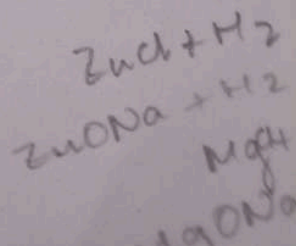 ZnCl + H2
ZnONa + H2
MgCl
gONa